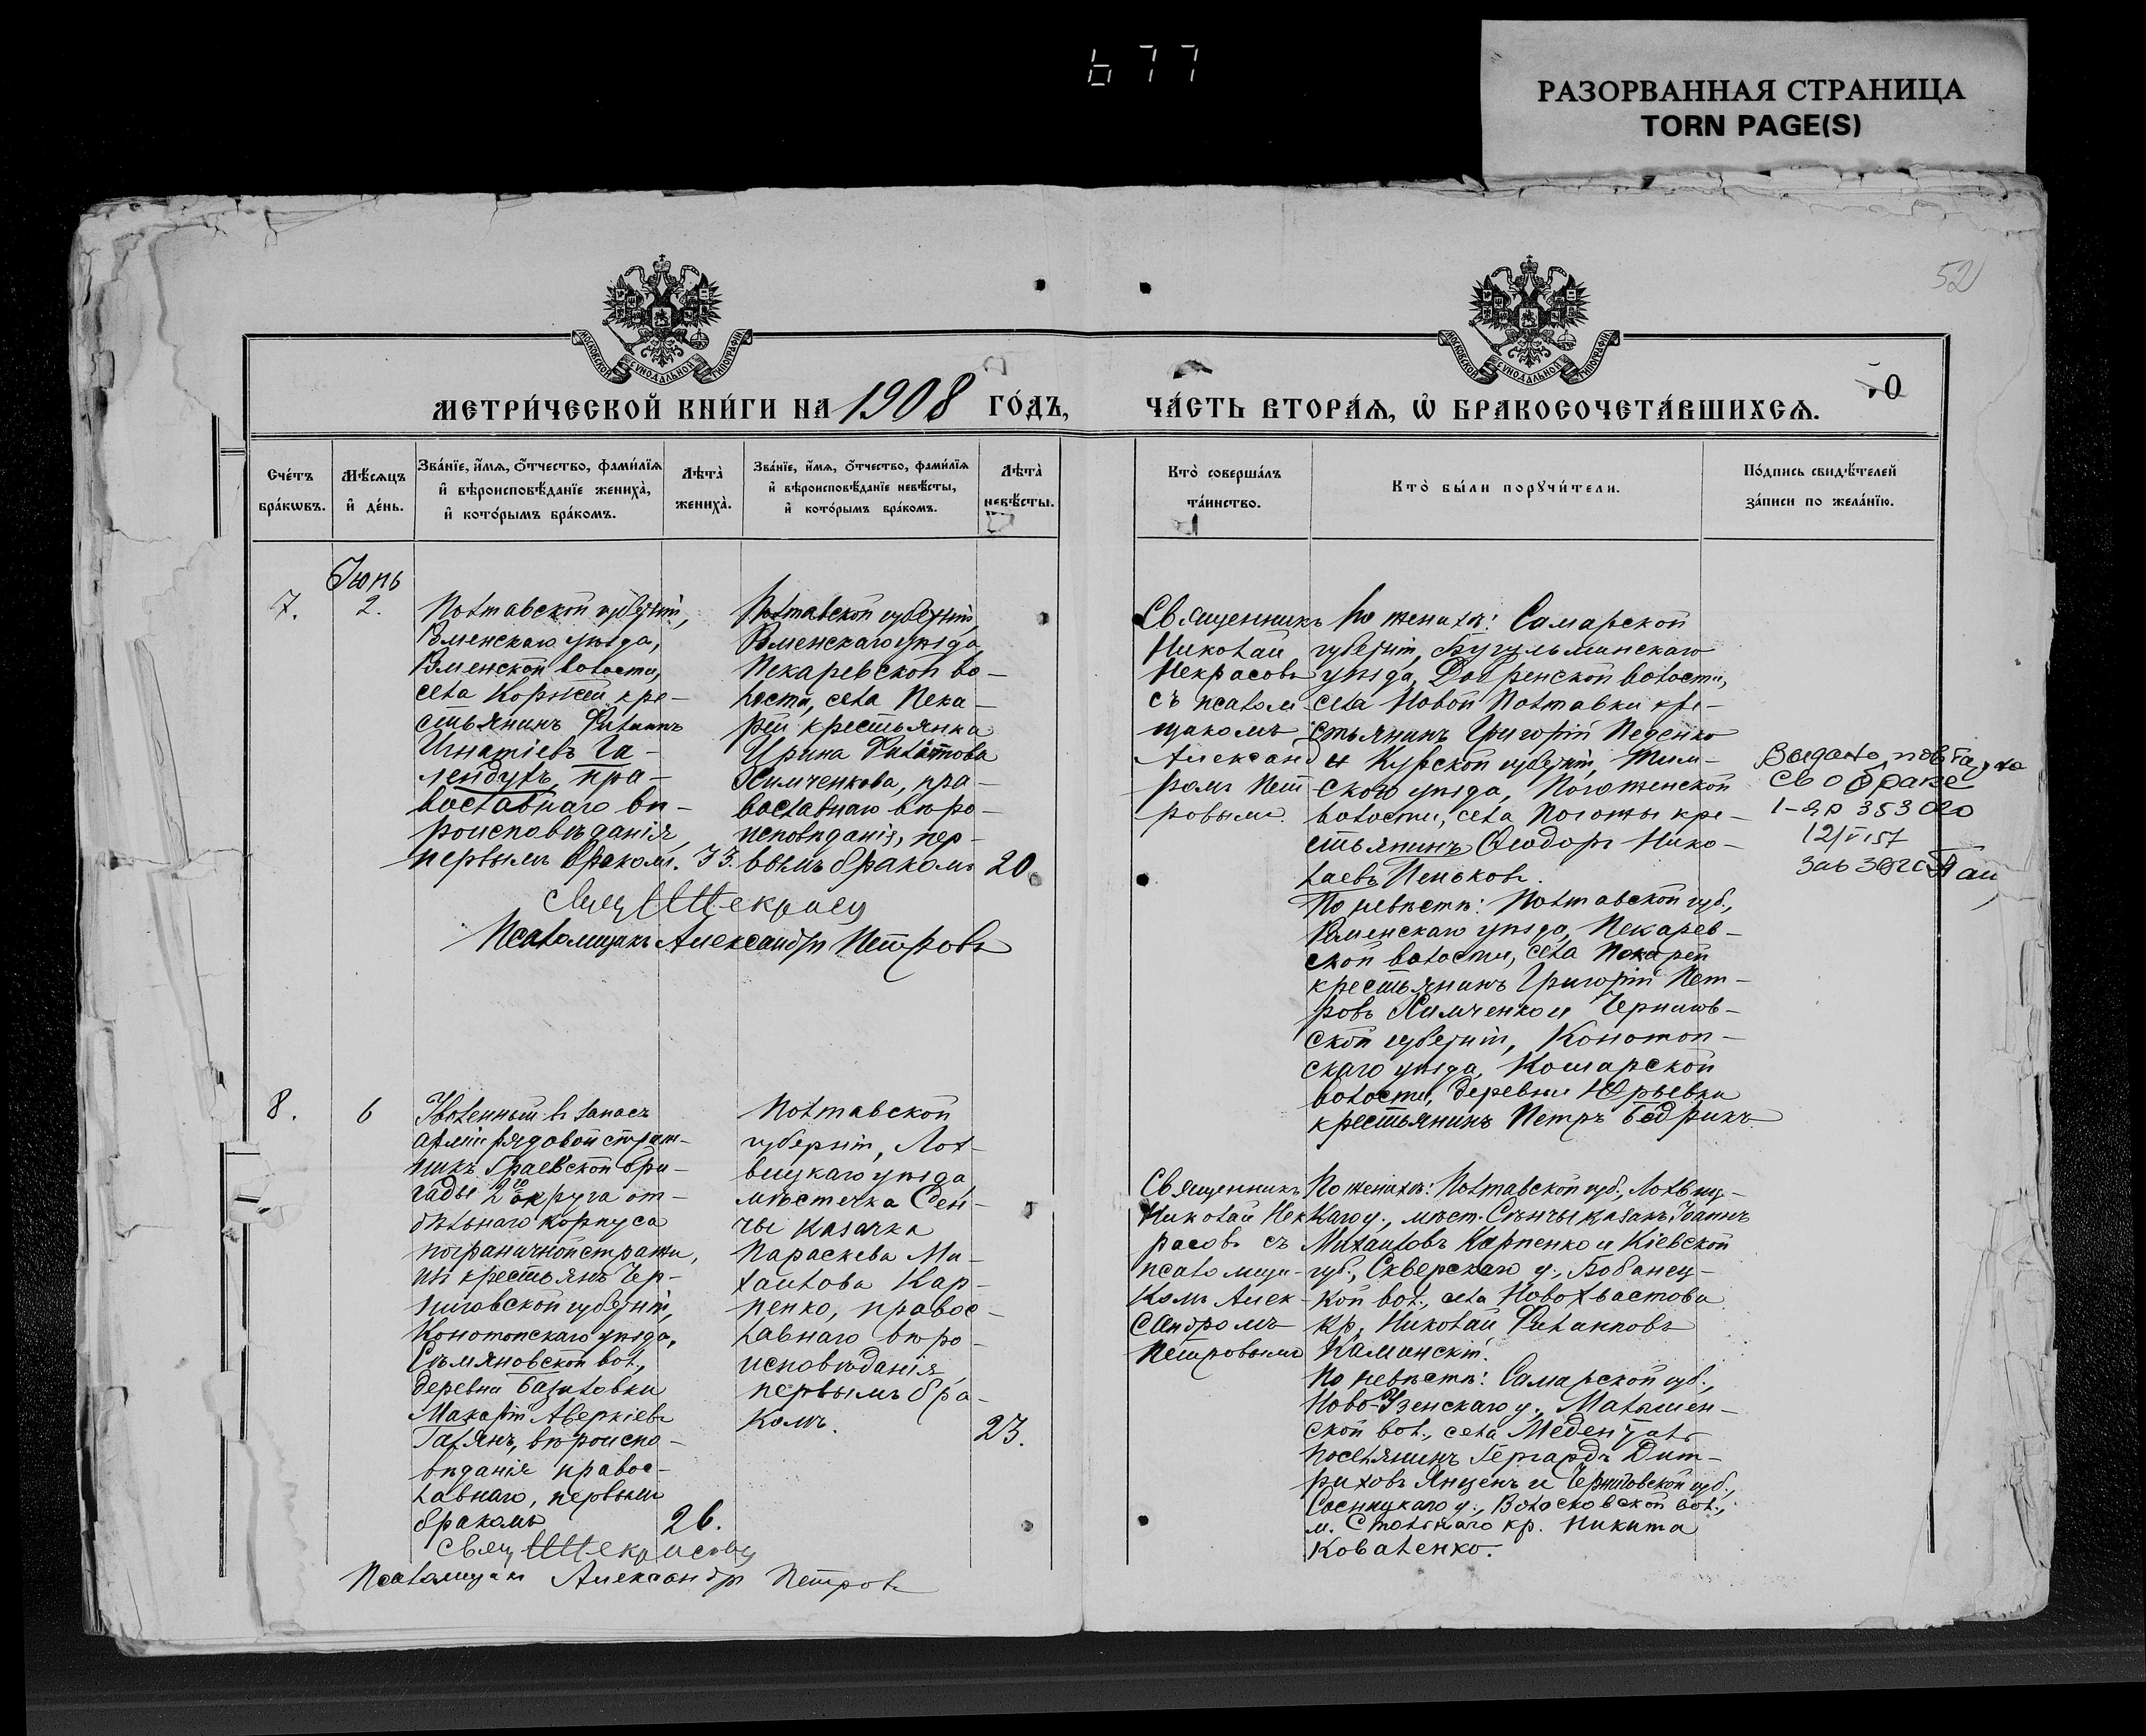 677
РАЗОРВАННАЯ СТРАНИЦА
TORN PAGE(S)
52
МОСКОВСКОЙ СУНОДАЛЬНОЙ ТИПОГРАФІИ
МОСКОВСКОЙ СУНОДАЛЬНОЙ ТИПОГРАФІИ
МЕТРИ́ЧЕСКОЙ КНИ́ГИ НА 1908 ГО́ДЪ,
ЧА́СТЬ ВТОРА́Я, Ѡ҆ БРАКОСОЧЕТА́ВШИХСЯ.
0
Сче́тъ
бра́кѡвъ.
Мѣ́сяцъ
и҆ де́нь.
Зва́нїе, и҆́мя, ѻ҆́тчество, фами́лїя
и҆ вѣроисповѣ́данїе жениха̀,
и҆ кото́рымъ бра́комъ.
Лѣта̀
жениха̀.
Зва́нїе, и҆́мя, ѻ҆́тчество, фами́лїя
и҆ вѣроисповѣ́данїе невѣ́сты,
и҆ кото́рымъ бра́комъ.
Лѣта̀
невѣ́сты.
Кто̀ соверша́лъ
та́инство.
Кто̀ бы́ли порꙋчи́тели.
По́дпись свидѣ́телей
за́писи по жела́нїю.
Іюнь
7.
2.
Полтавской губерніи,
Роменскаго уѣзда,
Роменской волости,
села Коржей, кре-
стьянинъ Филиппъ
Игнатіевъ Га-
лендухъ, пра-
вославнаго вѣ-
роисповѣданія,
первымъ бракомъ.
33.
Полтавской губерніи,
Роменскаго уѣзда,
Пекаревской во-
лости, села Пека-
рей крестьянка
Ирина
Химченкова, пра-
вославнаго вѣро-
исповѣданія, пер-
вымъ бракомъ
20.
Священникъ
Николай
Некрасовъ
съ псалом-
щикомъ
Александ-
ромъ Пет-
ровымъ.
По женихѣ: Самарской
губерніи, Бугульминскаго
уѣзда, волости,
села Новой Полтавки кре-
стьянинъ Григорій
и Курской губерніи, Тим-
скаго уѣзда, Погоженской
волости, села Погожы кре-
стьянинъ Ѳеодоръ Нико-
лаевъ Пеньковъ.
По невѣстѣ: Полтавской губ.,
Роменскаго уѣзда, Пекарев-
ской волости, села Пекарей
крестьянинъ Григорій Пет-
ровъ Химченко и Чернигов-
ской губерніи, Конотоп-
скаго уѣзда, Кошарской
волости, деревни Юрьевки
крестьянинъ Петръ Бедрикъ.
Выдано
св о браке
353020
12/VI 57
Зав загс
Свящ Н Некрасовъ
Псаломщикъ Александръ Петровъ
8.
6
Уволенный въ запасъ
арміи рядовой страж-
никъ Граевской бри-
гады 2го округа от-
дѣльнаго корпуса
пограничной стражи,
изъ крестьянъ Чер-
ниговской губерніи,
Конотопскаго уѣзда,
вол.,
деревни Базиловки
Макарій Аверкіевъ
вѣроиспо-
вѣданія правос-
лавнаго, первымъ
бракомъ
26.
Полтавской
губерніи, Лох-
вицкаго уѣзда
мѣстечка Сен-
чи казачка
Параскева Ми-
хаилова Кар-
пенко, правос-
лавнаго вѣро-
исповѣданія
первымъ бра-
комъ.
23.
Священникъ
Николай Нек-
расовъ съ
псаломщи-
комъ Алек-
сандромъ
Петровымъ
По женихѣ: Полтавской губ., Лохвиц-
каго у., мѣст. Сѣнчи казакъ Іоаннъ
Михаиловъ Карпенко и Кіевской
губ., Сквирскаго у.,
кой вол., села Новохвастова
кр. Николай Филипповъ
Каминскій.
По невѣстѣ: Самарской губ.,
Ново-Узенскаго у., Малышен-
ской вол., села Медемталь
поселянинъ Гергардъ Дит-
риховъ Янценъ и Черниговской губ.,
Сосницкаго у., Волосковской вол.,
м. Стольнаго кр. Никита
Коваленко.
Свящ Н Некрасовъ
Псаломщикъ Александръ Петровъ